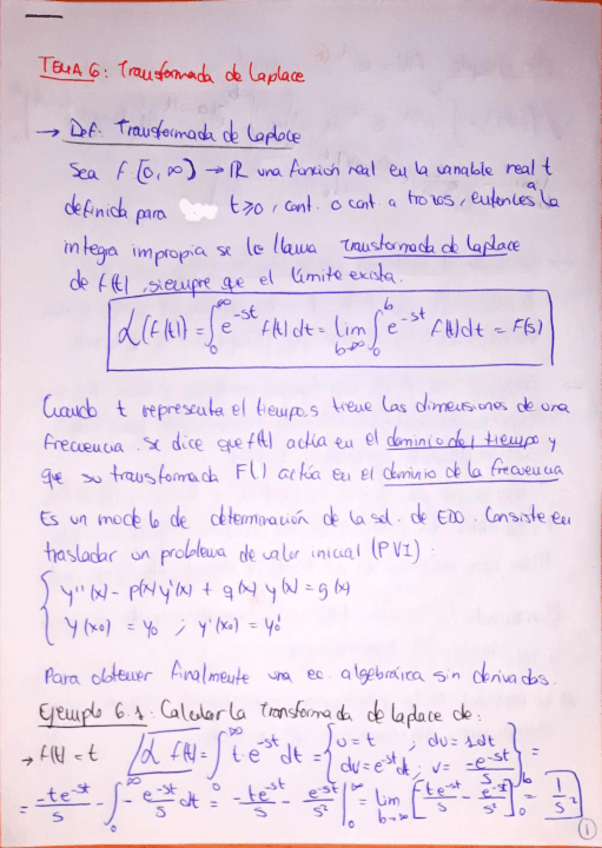 TEMA 6: Transformada de Laplace
→ Def. Transformada de Laplace
Sea f: [0, ∞) → ℝ una función real en la variable real t
definida para t≥0, cont. o cont. a trozos, entonces a la
integra impropia se le llama transformada de Laplace
de f(t), siempre que el límite exista.
ℒ(f(t)) = ∫₀^∞ e^(-st) f(t) dt = lim_(b→∞) ∫₀^b e^(-st) f(t) dt = F(s)
Cuando t representa el tiempo, s tiene las dimensiones de una
frecuencia. Se dice que f(t) actúa en el dominio del tiempo y
que su transformada F( ) actúa en el dominio de la frecuencia
Es un modelo de determinación de la sol. de EDO. Consiste en
trasladar un problema de valor inicial (PVI):
{ y''(x) - p(x) y'(x) + q(x) y(x) = g(x)
y(x₀) = y₀ ; y'(x₀) = y₀'
Para obtener finalmente una ec. algebraica sin derivados.
Ejemplo 6.1: Calcular la transformada de Laplace de:
→ f(t) = t ℒ f(t) = ∫₀^∞ t·e^(-st) dt = { u = t ; du = 1dt dv = e^(-st) dt ; v = -e^(-st)/s } =
= -te^(-st)/s - ∫₀^∞ -e^(-st)/s dt = -te^(-st)/s - e^(-st)/s² |₀^∞ = lim_(b→∞) [-te^(-st)/s - e^(-st)/s²]₀^b = 1/s²
1